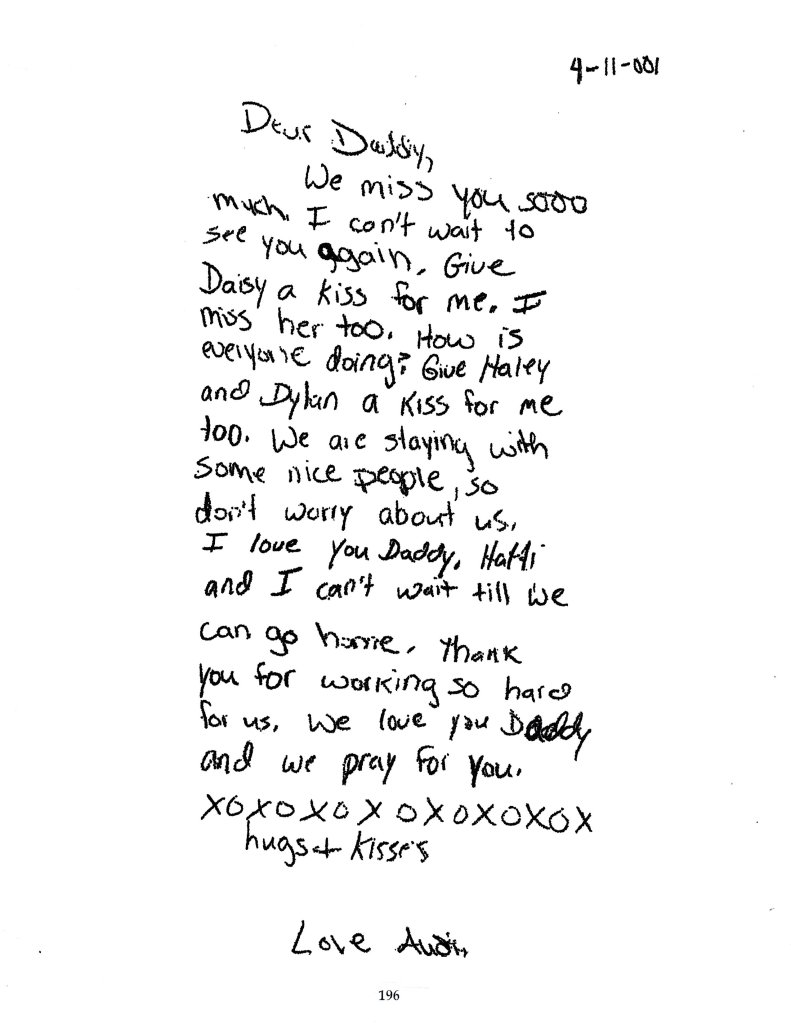 4-11-001
Dear Daddy,
We miss you sooo
much. I can't wait to
see you again. Give
Daisy a kiss for me. I
miss her too. How is
everyone doing? Give Haley
and Dylan a kiss for me
too. We are staying with
some nice people, so
don't worry about us.
I love you Daddy. Hatti
and I can't wait till we
can go home. Thank
you for working so hard
for us. We love you Daddy
and we pray for you.
XOXOXOXOXOXOXOX
hugs + kisses
Love
196